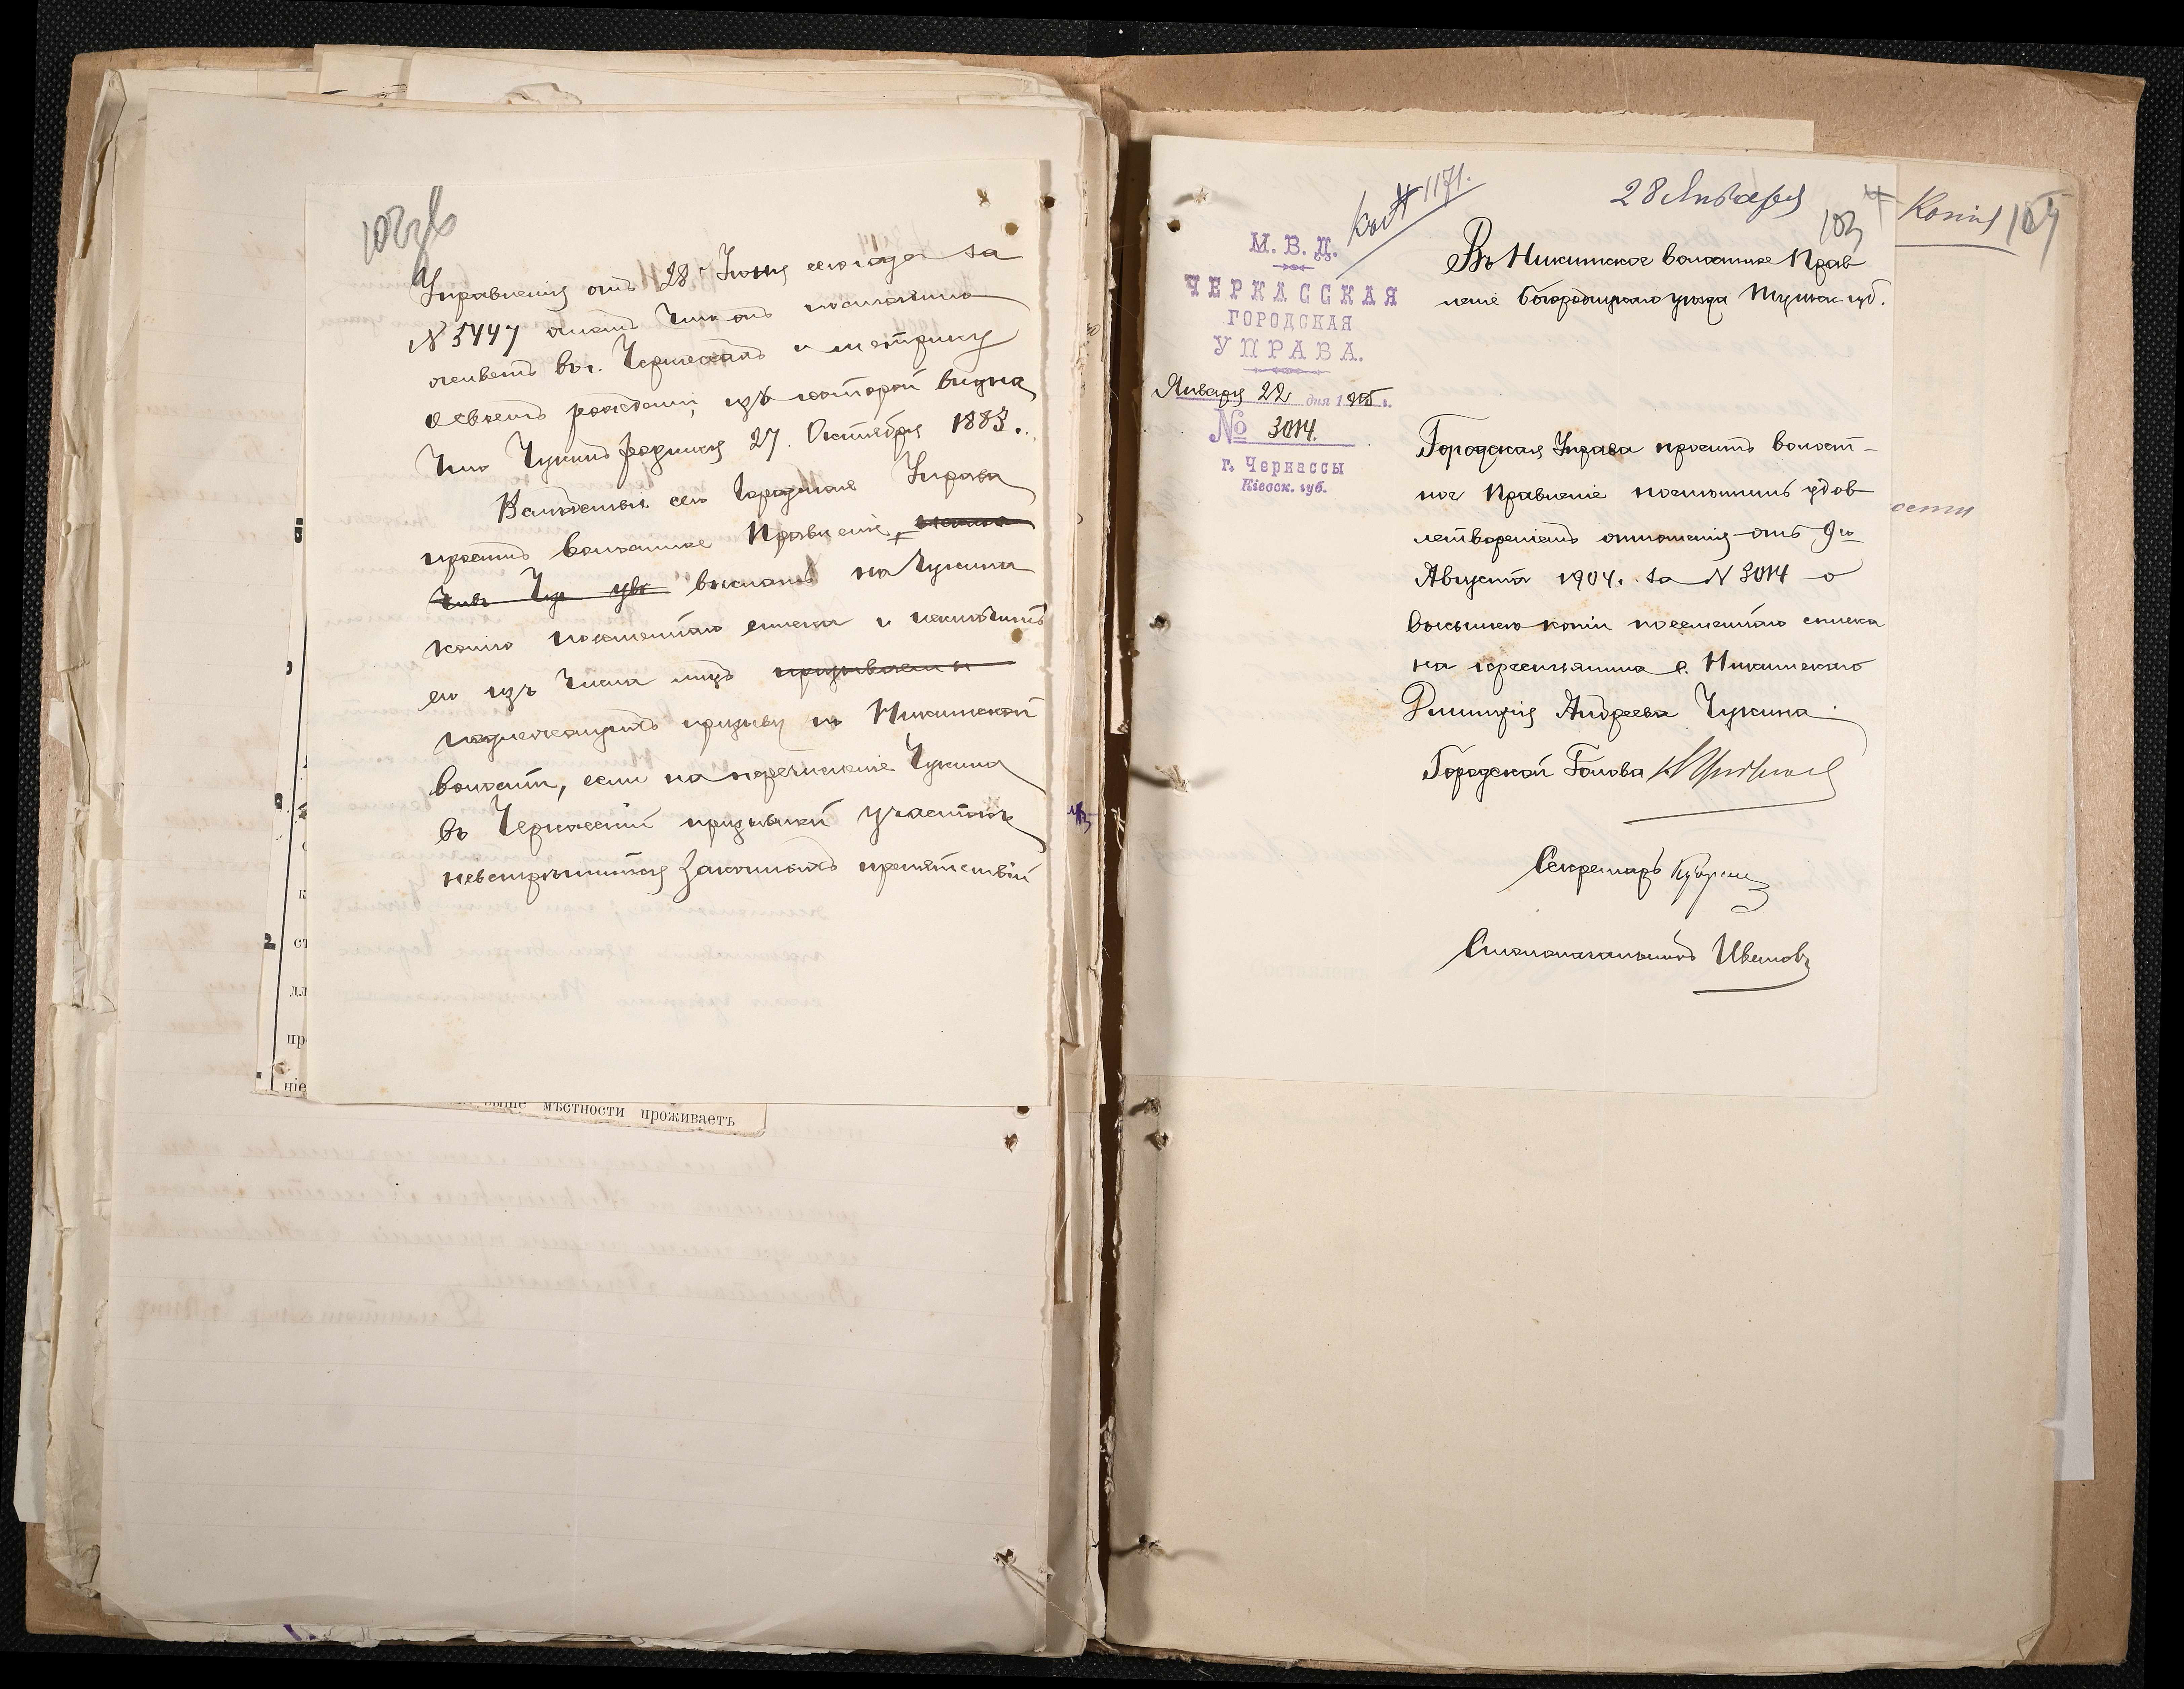 Управленія отъ 28 Іюня сего года за
N 5447 о томъ что онъ постоянно
живетъ въ г. Черкассахъ и метрику
о своемъ рожденіи, изъ которой видно
что Чукинъ родился 27. Октября 1883.
Вслѣдствіе сего Городская Управа
проситъ волостное Правленіе
выслать на Чукина
копію посемейнаго списка и исключить
его изъ числа лицъ призываемы
подлежащихъ призыву по Никитской
волости, если на перечисленіе Чукина
въ Черкасскій призывной участокъ
невстрѣтится законныхъ препятствій
выше мѣстности проживаетъ
28 Января
1171.
103
Копія
М. В. Д.
ЧЕРКАССКАЯ
ГОРОДСКАЯ
УПРАВА.
Января 22 дня 1905 г.
№ 3014.
г. Черкассы
Кіевск. губ.
Въ Никитское волостное Прав
леніе Богородицкаго уѣзда Тульск. губ.
Городская Управа проситъ волост-
ное Правленіе поспѣшить удов
летвореніемъ отношенія отъ 9го
Августа 1904 г. за N 3014 о
высылкѣ копіи посемейнаго списка
на крестьянина с. Никитскаго
Дмитрія Андреева Чукина.
Городской Голова
Секретарь
Столоначальникъ Ивановъ
ости